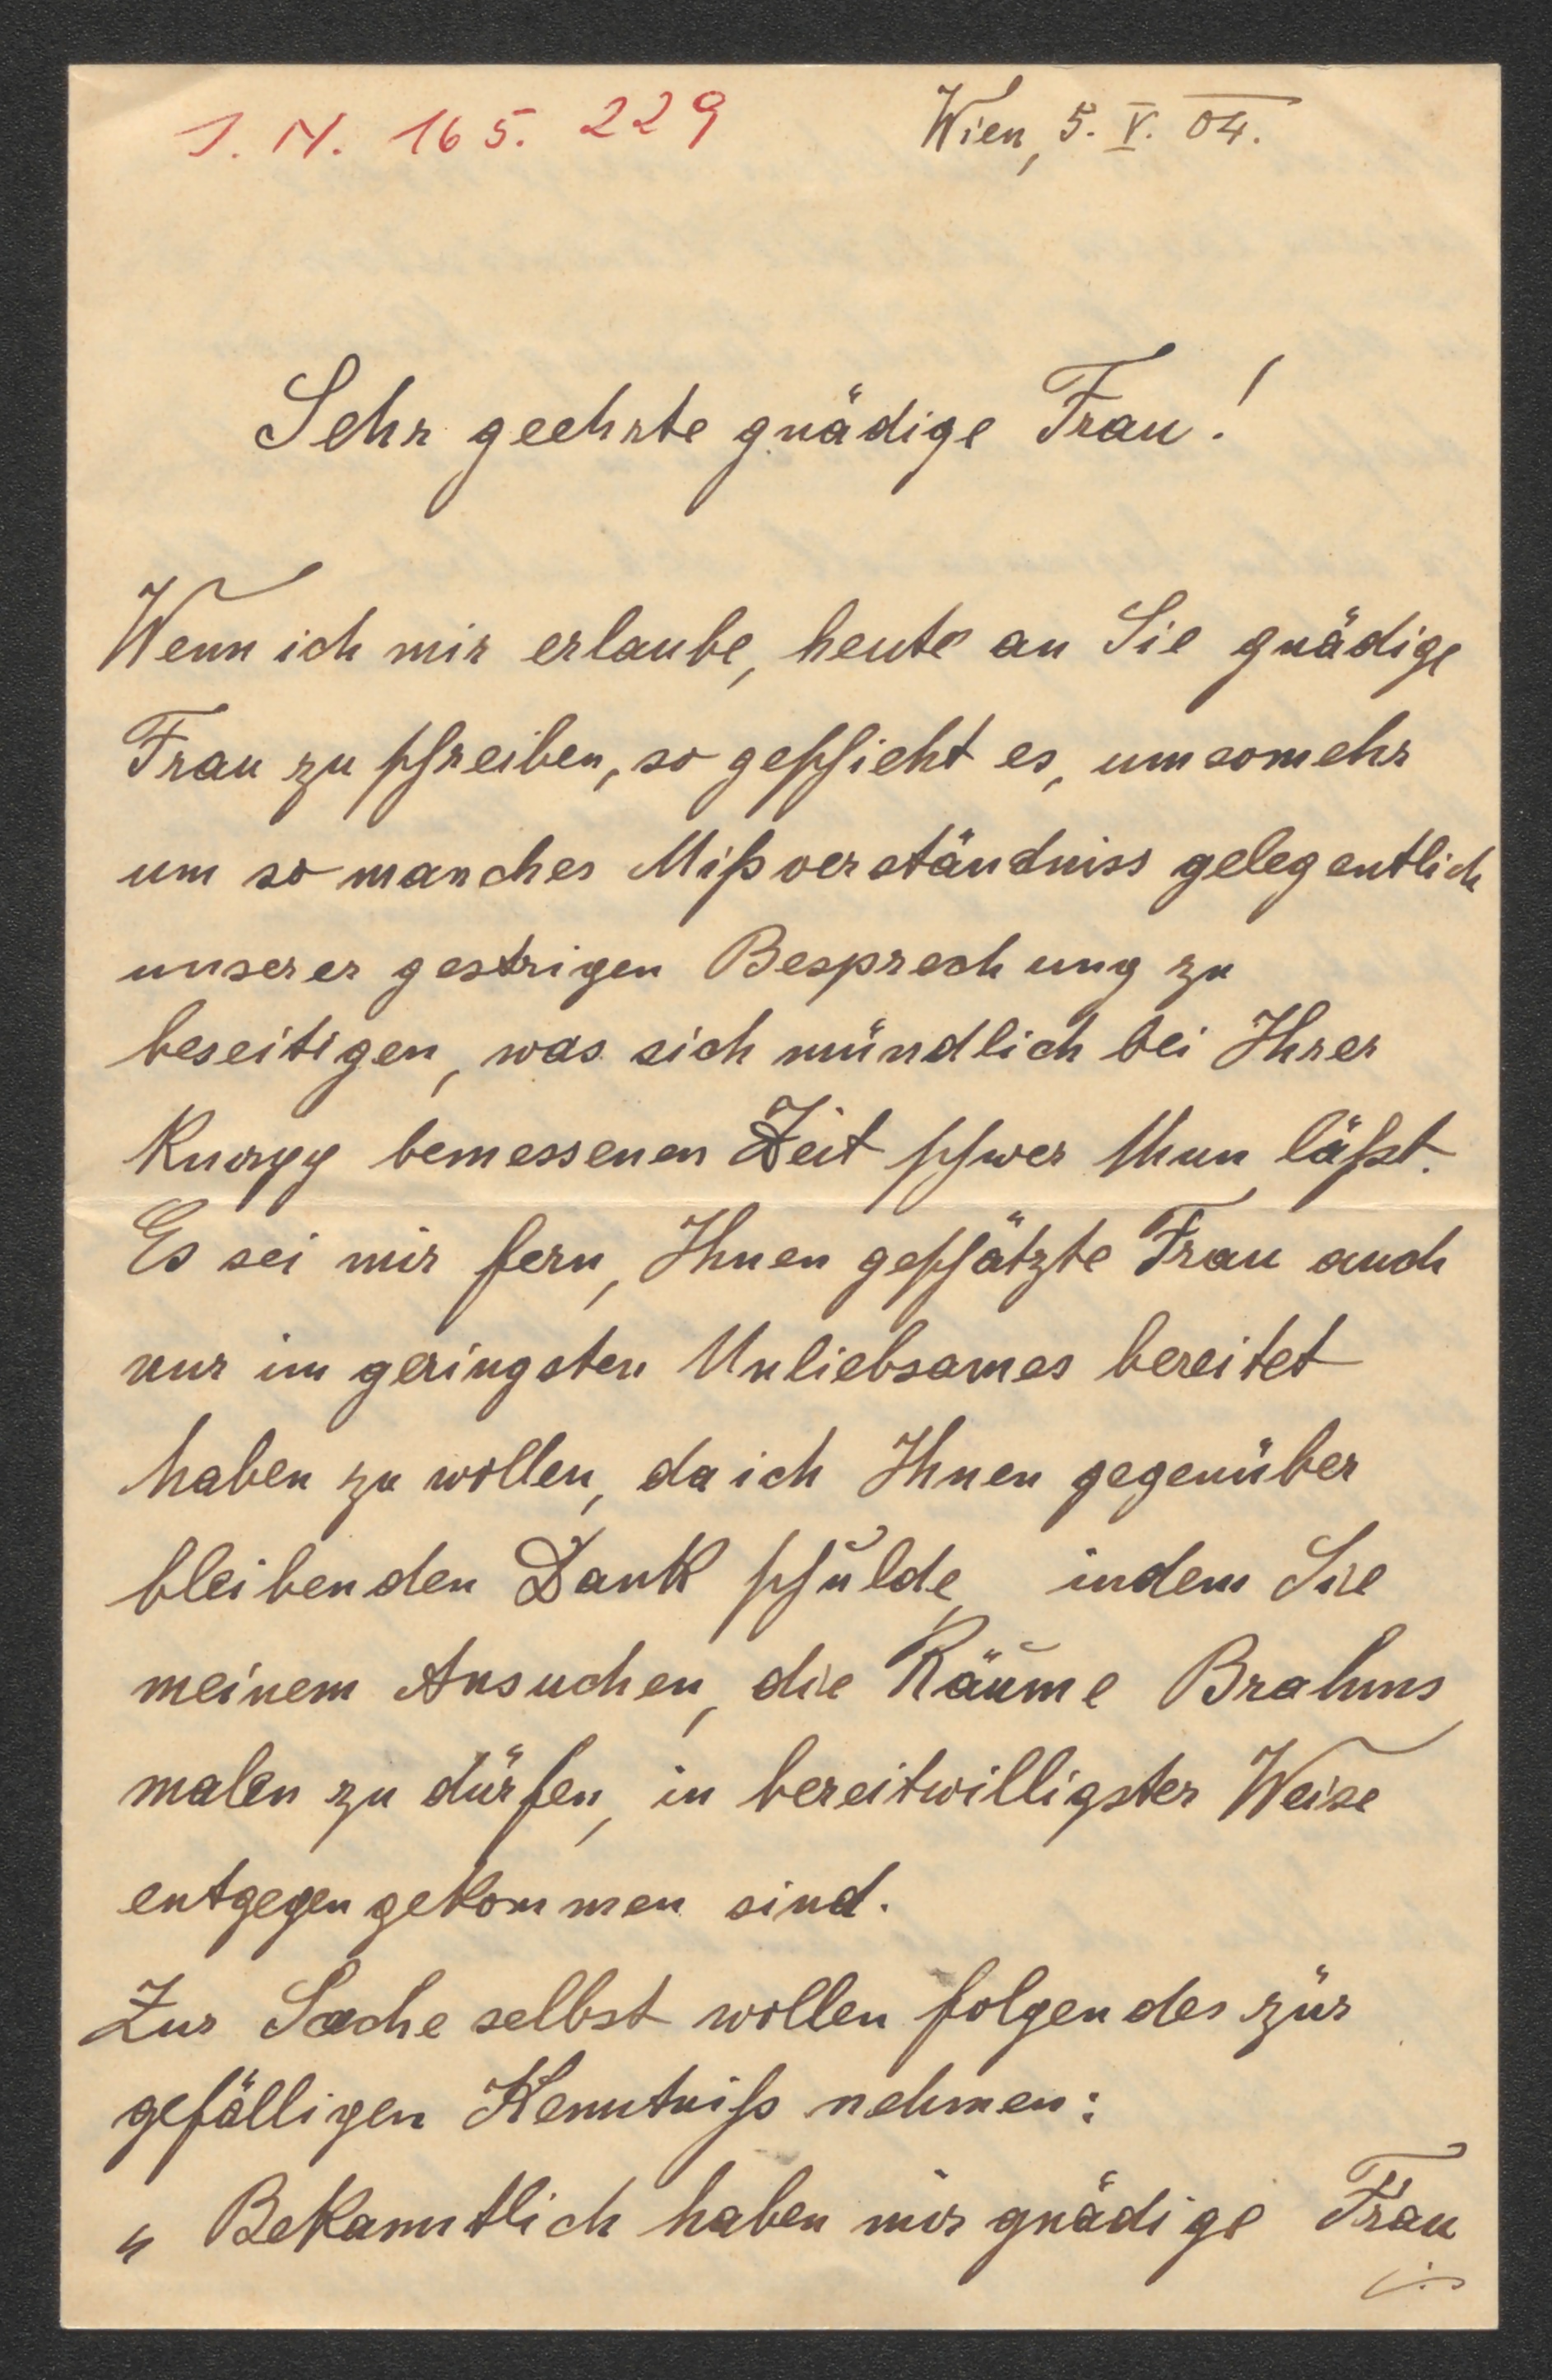 J. N. 165. 229
Wien, 5. V. 04.
Sehr geehrte gnädige Frau!
Wenn ich mir erlaube, heute an Sie gnädige
Frau zu schreiben, so geschieht es, umsomehr
um so manches Mißverständniss gelegentlich
unserer gestrigen Besprechung zu
beseitigen, was sich mündlich bei Ihrer
Knapp bemessenen Zeit schwer thun läßt.
Es sei mir fern, Ihnen geschätzte Frau auch
nur im geringsten Unliebsames bereitet
haben zu wollen, da ich Ihnen gegenüber
bleibenden Dank schulde, indem Sie
meinem Ansuchen, die Räume Brahms
malen zu dürfen, in bereitwilligster Weise
entgegengekommen sind.
Zur Sache selbst wollen folgendes zur
gefälligen Kenntniß nehmen:
„ Bekanntlich haben mir gnädige Frau
./.